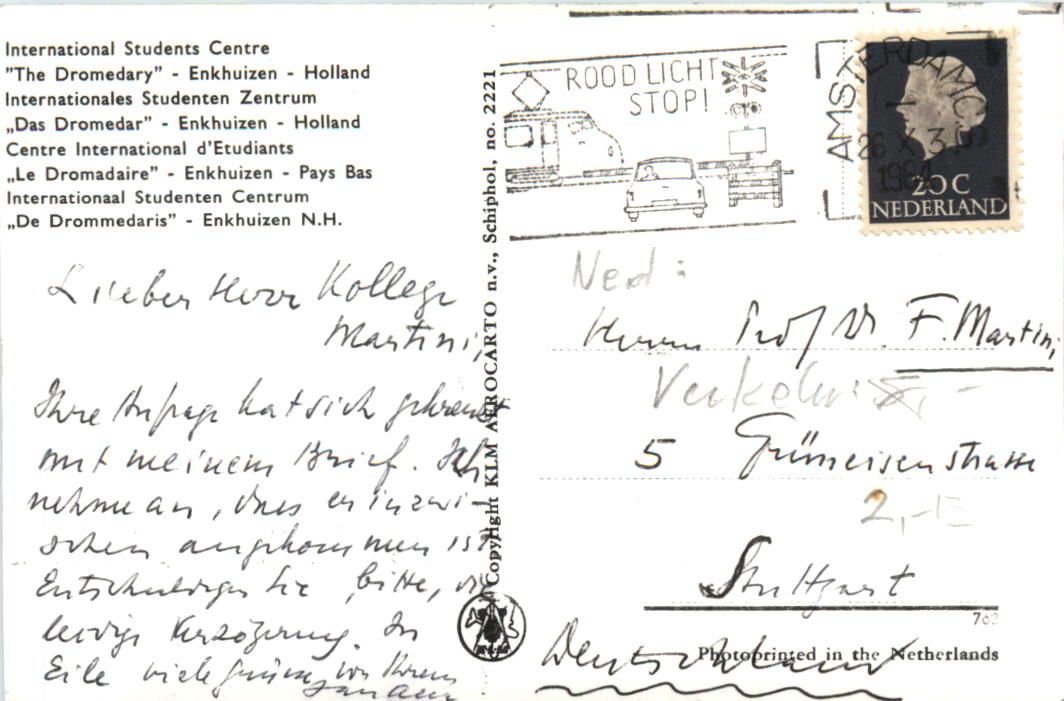 International Students Centre
"The Dromedary" - Enkhuizen - Holland
Internationales Studenten Zentrum
„Das Dromedar” - Enkhuizen - Holland
Centre International d'Etudiants
„Le Dromadaire” - Enkhuizen - Pays Bas
Internationaal Studenten Centrum
„De Drommedaris” - Enkhuizen N.H.
Lieber Herr Kollege
Martini,
Ihre Anfrage hat sich gekreuzt
mit meinem Brief. Ich
nehme an, dass er inzwi-
schen angekommen ist
Entschuldigen Sie, bitte, die
leidige Verzögerung. In
Eile viele von Ihrem
Copyright KLM AEROCARTO n.v., Schiphol, no. 2221
ROOD LICHT
STOP!
AMSTERDAM
26 X
20 C
NEDERLAND
Ned:
Herrn Prof Dr. F. Martini
5 Grüneisenstrasse
2,-
Stuttgart
762
Deutschland
Photoprinted in the Netherlands